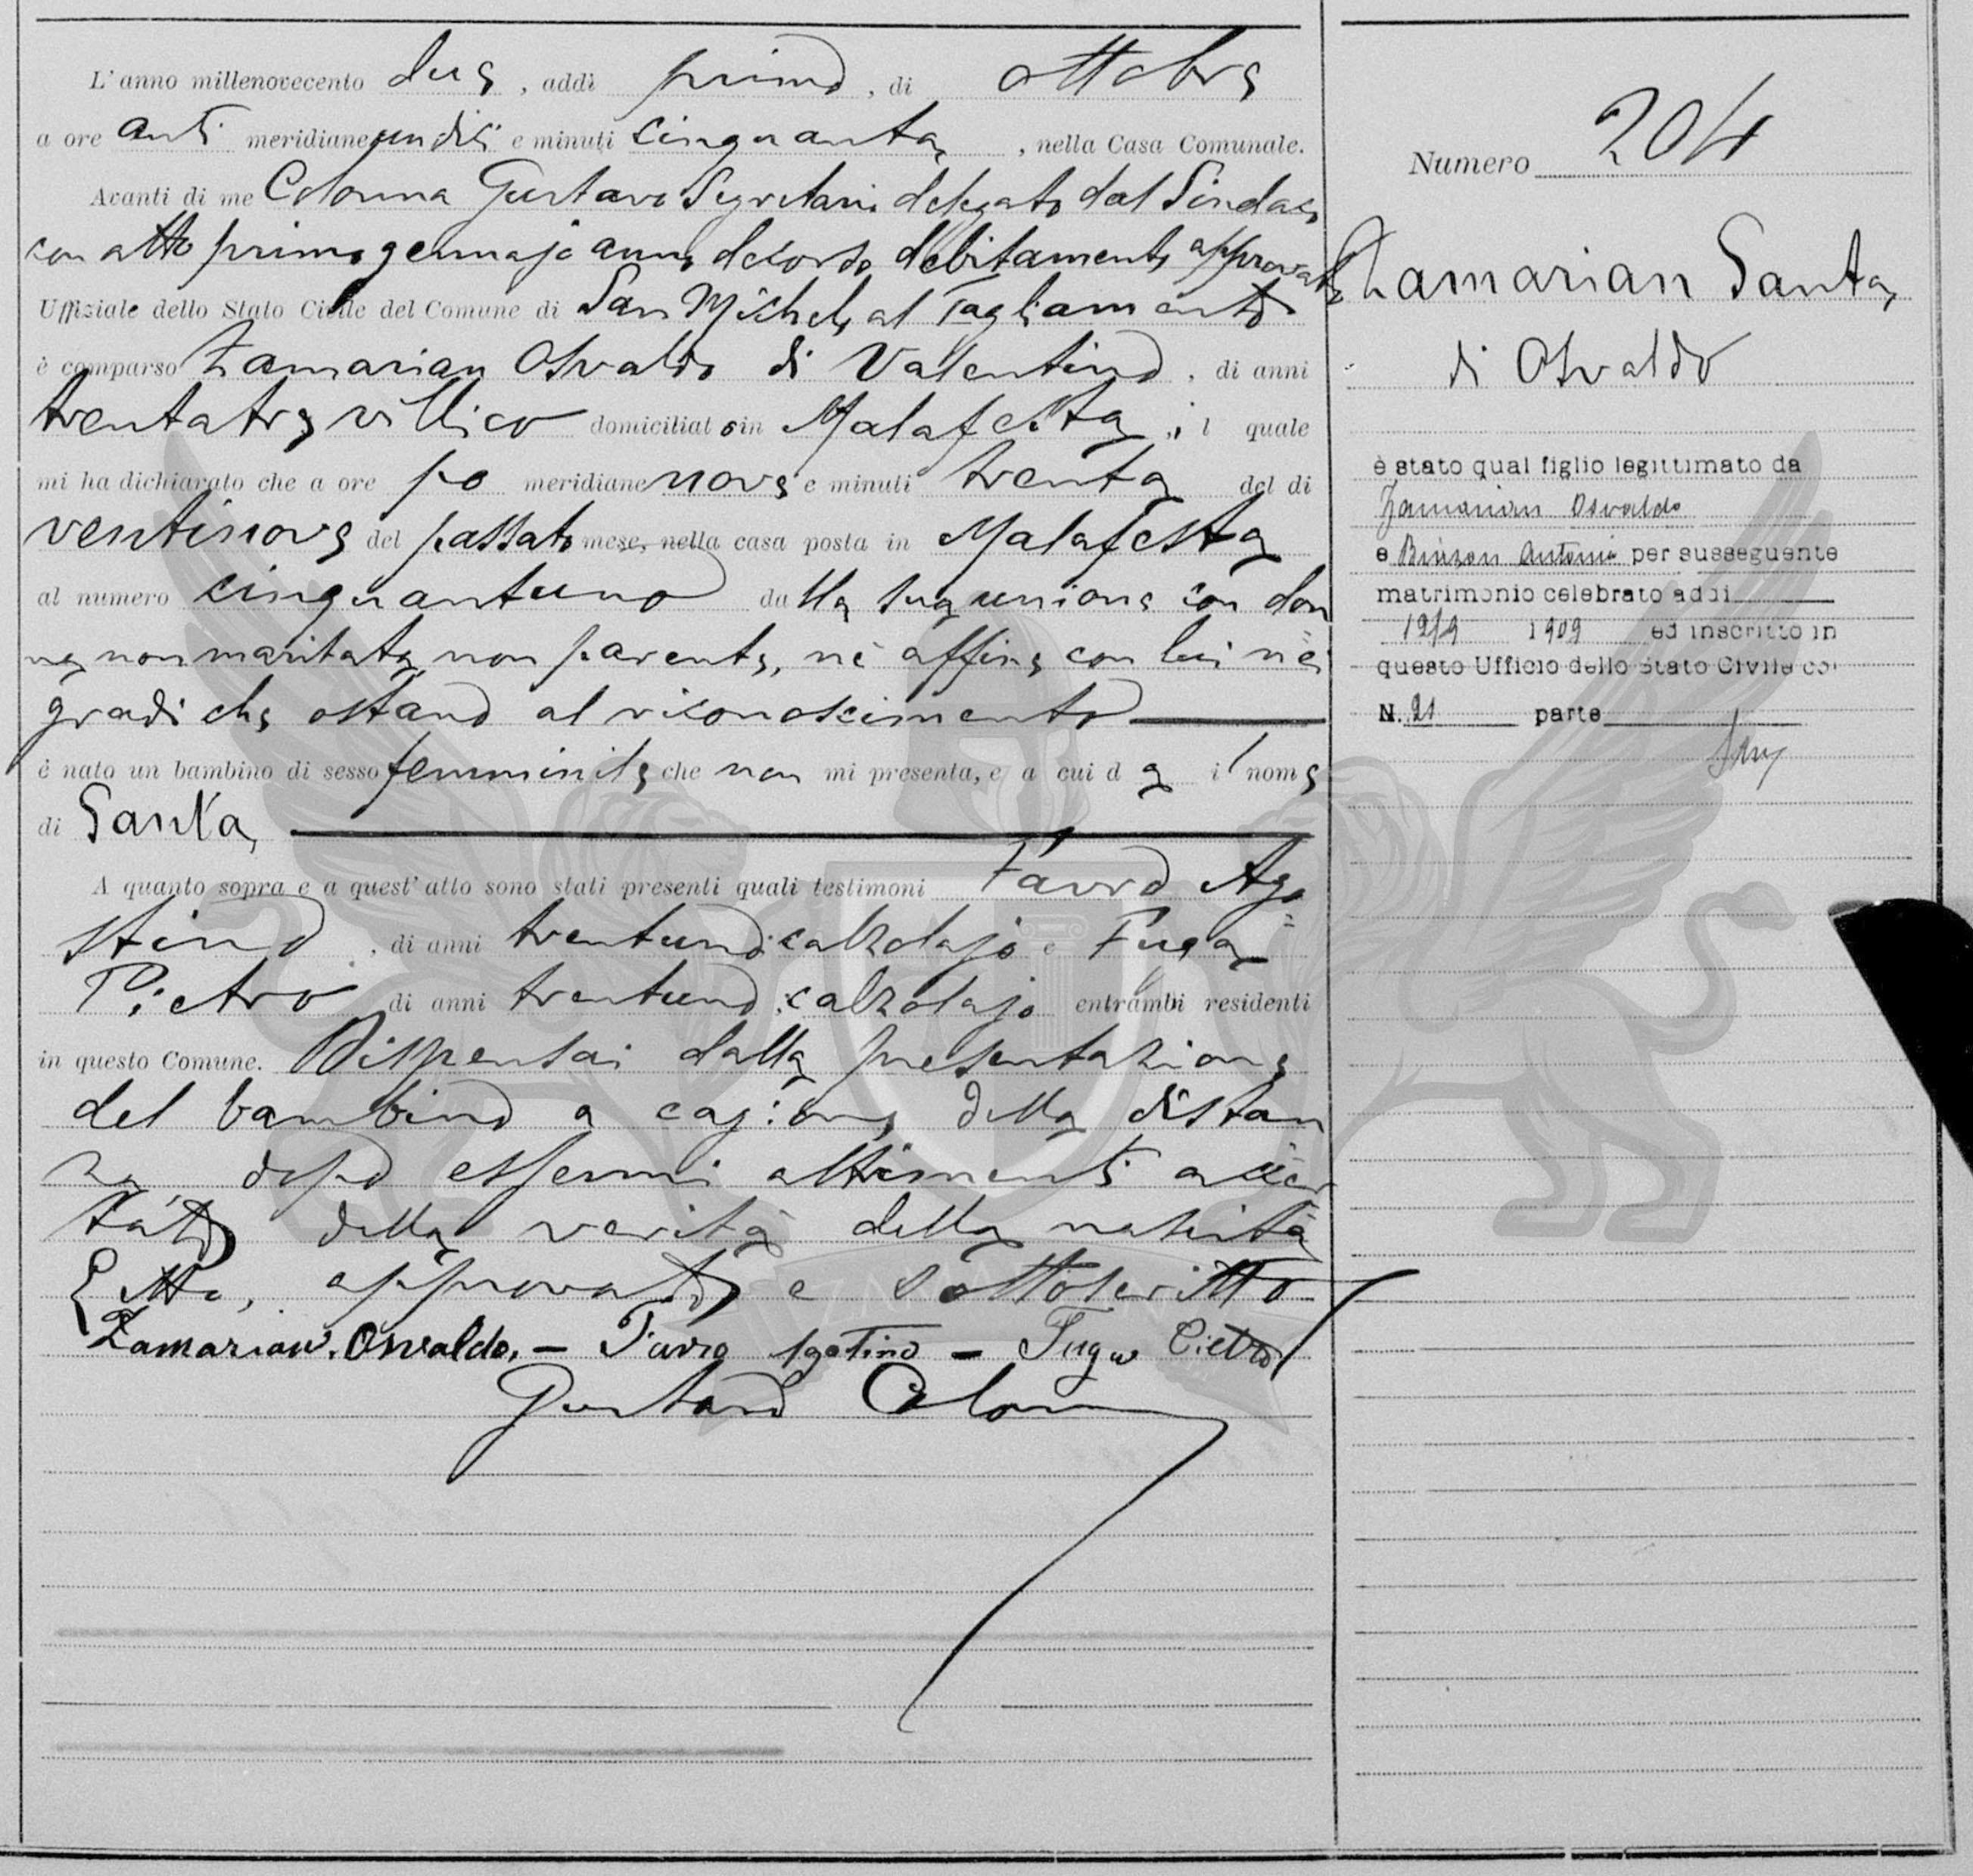 L'anno millenovecento due, addì primo, di ottobre
a ore anti meridiane undici e minuti cinquanta, nella Casa Comunale.
Avanti di me Colonna Gustavo Segretario delegato dal Sindaco
con atto primo gennajo anno decorso debitamente approvato
Uffiziale dello Stato Civile del Comune di San Michele al Tagliamento
è comparso Zamarian Osvaldo di Valentino, di anni
trentatre villico domiciliato in Malafesta, il quale
mi ha dichiarato che a ore po meridiane nove e minuti trenta del dì
ventinove del passato mese, nella casa posta in Malafesta
al numero cinquantuno dalla sua unione con don
na non maritata, non parente, nè affine con lui nei
gradi che ostano al riconoscimento
è nato un bambino di sesso femminile che non mi presenta, e a cui dà il nome
di Santa
A quanto sopra e a quest'atto sono stati presenti quali testimoni Favro Ago
stino, di anni trentuno calzolajo e Fuga
Pietro di anni trentuno, calzolajo entrambi residenti
in questo Comune. Dispensai dalla presentazione
del bambino a cagione della distan
za dopo essermi altrimenti accer
tato della verità della nascita
Letto, approvato e sottoscritto
Zamarian Osvaldo. - Favro Agostino - Fuga Pietro
Gustavo Colonna
Numero 204
Zamarian Santa
di Osvaldo
è stato qual figlio legittimato da
Zamarian Osvaldo
e Antonia per susseguente
matrimonio celebrato addi
12/9 1909 ed inscritto in
questo Ufficio dello Stato Civile col
N. 21 parte